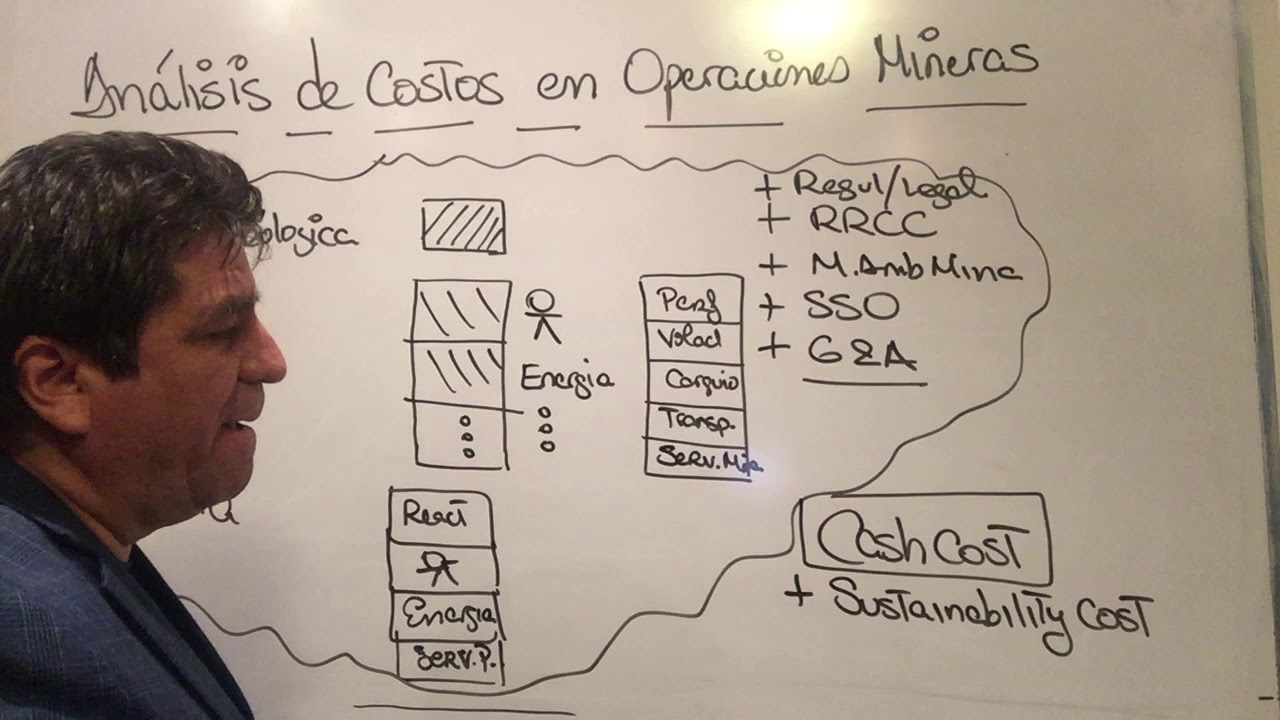 Análisis de Costos en Operaciones Mineras
+ Regul/Legal
+ RRCC
+ M. Amb Mina
+ SSO
+ G&A
ologica
Energia
Perf
Volad
Carguio
Transp.
Serv. Mina
React
Energia
Serv. P.
Cash Cost
+ Sustainability Cost